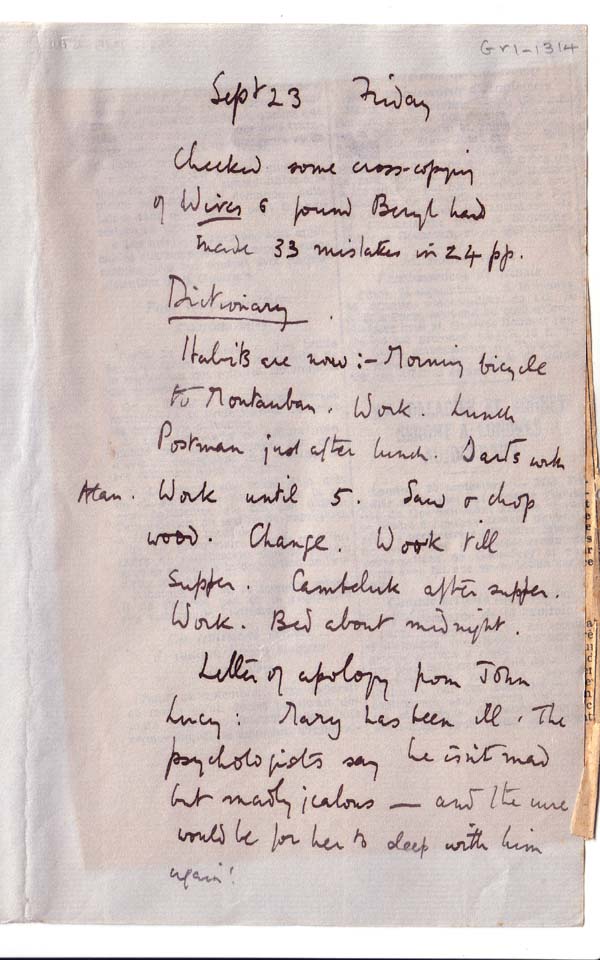 Gr1-1314
Sept 23 Friday
Checked some cross-copying
of Wives & found Beryl had
made 33 mistakes in 24 pp.
Dictionary.
Habits are now:- Morning bicycle
to Montauban. Work. Lunch
Postman just after lunch. Darts with
Alan. Work until 5. Saw & chop
wood. Change. Work till
supper. Camboluk after supper.
Work. Bed about midnight.
Letter of apology from John
Lucy: Mary has been ill. The
psychologists say he isn't mad
but madly jealous — and the cure
would be for her to sleep with him
again!